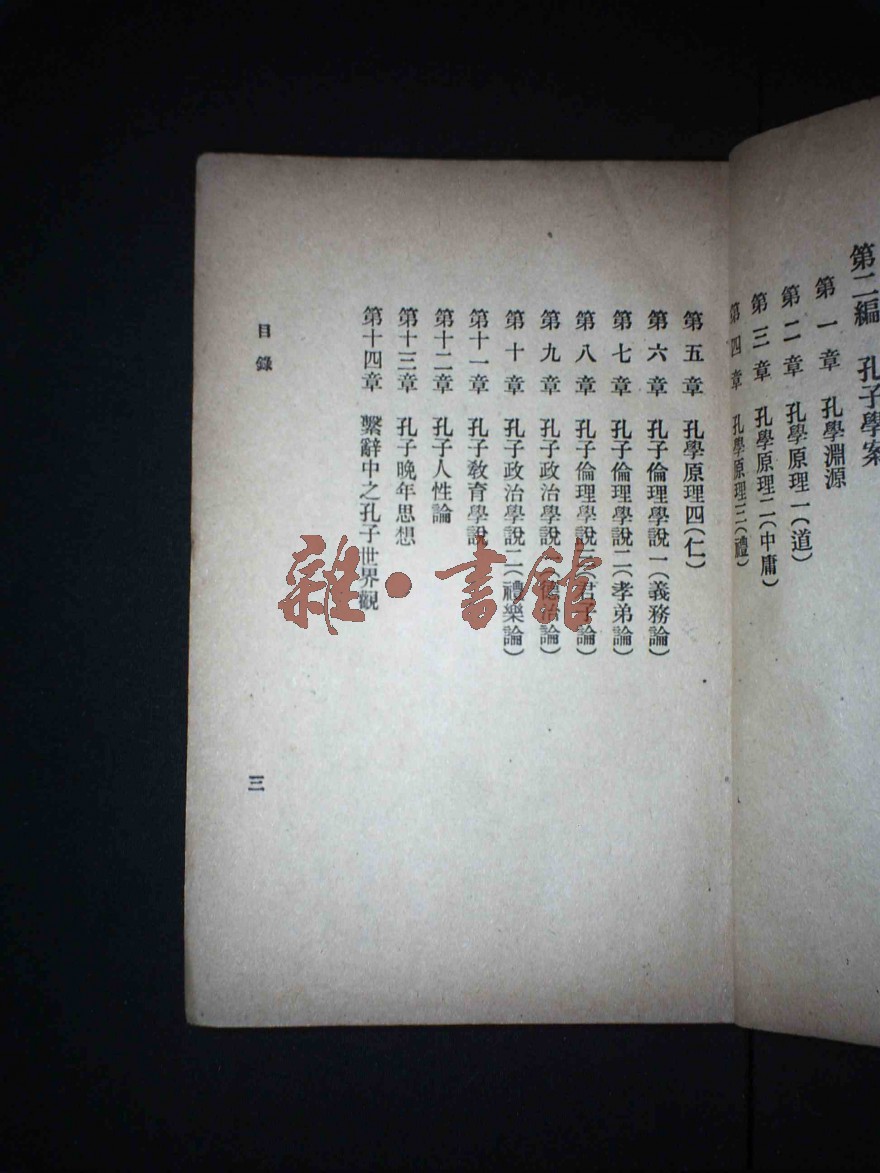 第二編　孔子學案
第一章　孔學淵源
第二章　孔學原理一(道)
第三章　孔學原理二(中庸)
第四章　孔學原理三(禮)
第五章　孔學原理四(仁)
第六章　孔子倫理學說一(義務論)
第七章　孔子倫理學說二(孝弟論)
第八章　孔子倫理學說三(君子論)
第九章　孔子政治學說一(德治論)
第十章　孔子政治學說二(禮樂論)
第十一章　孔子教育學說
第十二章　孔子人性論
第十三章　孔子晚年思想
第十四章　繫辭中之孔子世界觀
目錄
三
雜·書館